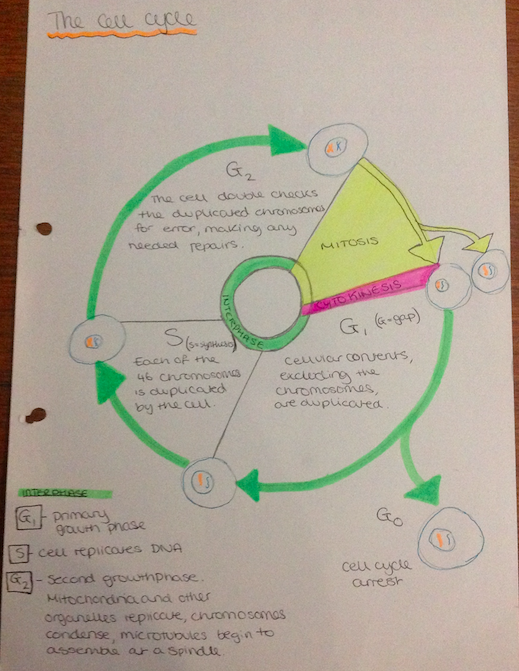 The cell cycle
G2
The cell double checks
the duplicated chromosomes
for error, making any
needed repairs.
MITOSIS
CYTOKINESIS
INTERPHASE
S (S=synthesis)
Each of the
46 chromosomes
is duplicated
by the cell.
G1 (G=gap)
cellular contents,
excluding the
chromosomes,
are duplicated.
G0
cell cycle
arrest
INTERPHASE
G1 - primary
growth phase
S - cell replicates DNA
G2 - Second growthphase.
Mitochondria and other
organelles replicate, chromosomes
condense, microtubules begin to
assemble at a spindle